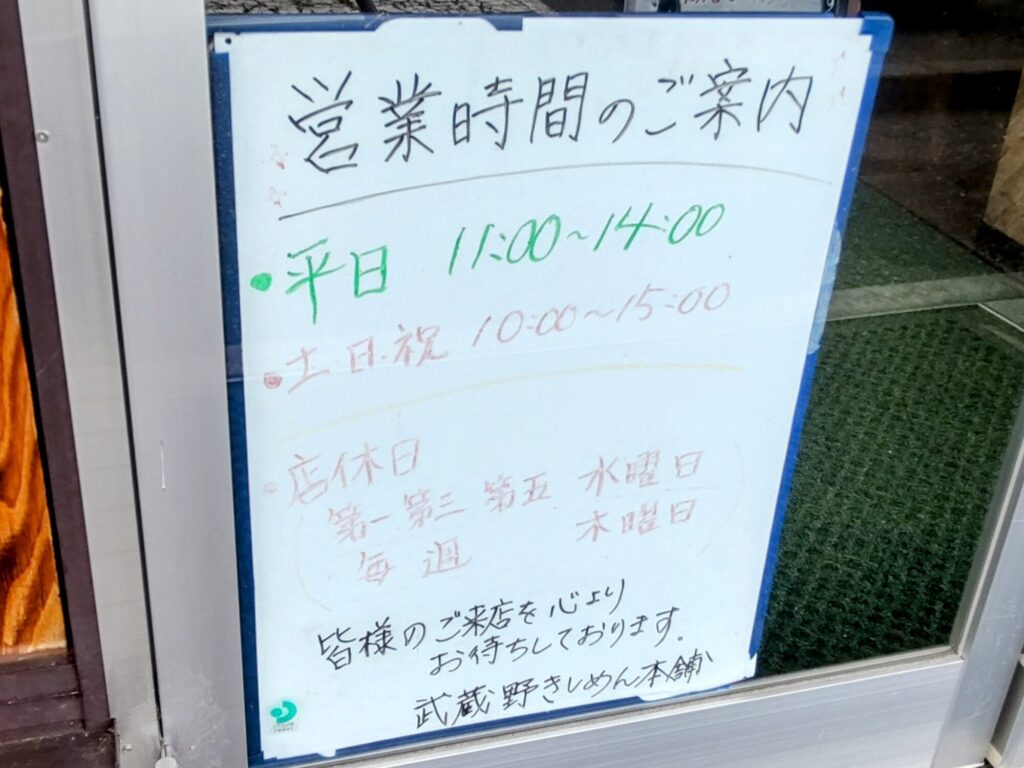 営業時間のご案内
・平日 11:00~14:00
・土・日・祝 10:00~15:00
・店休日
第一 第三 第五 水曜日
毎週 木曜日
皆様のご来店を心より
お待ちしております。
武蔵野きしめん本舗